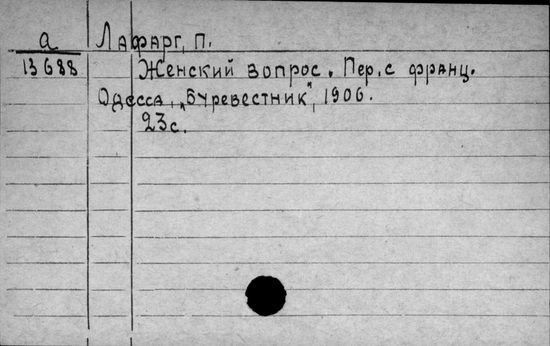 а Лафарг, П.
13688 Женский вопрос. Пер. с франц.
Одесса, „Буревестник", 1906.
23 с.